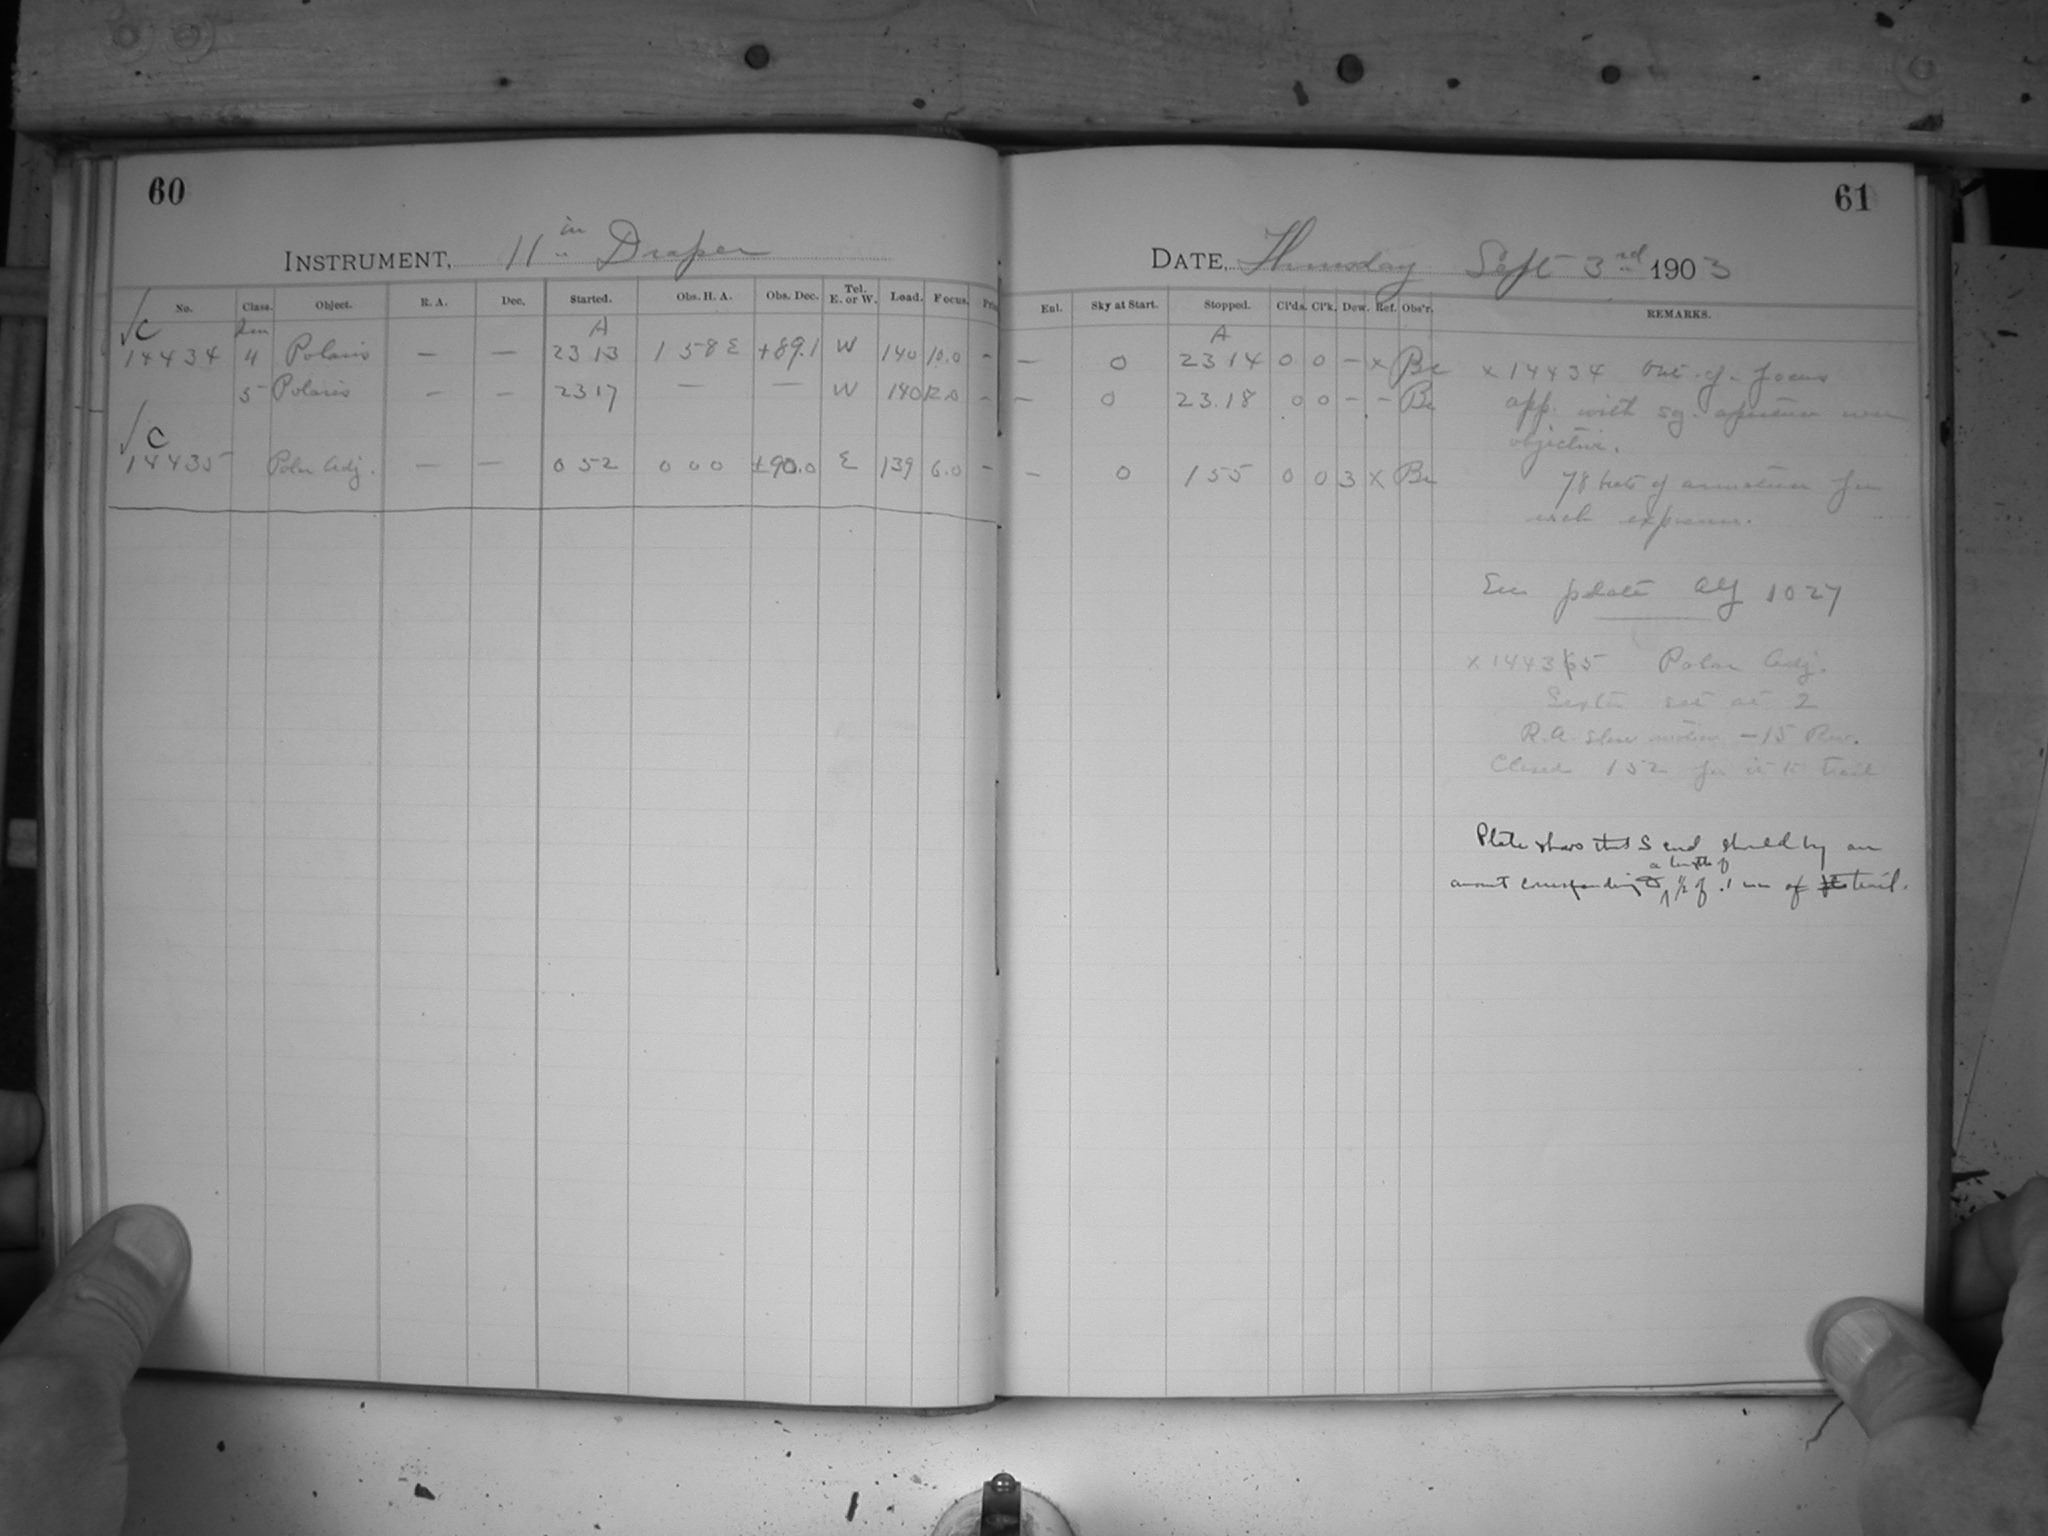 60
INSTRUMENT, 11 in Draper
No. Class. Object. R. A. Dec. Started. Obs. H. A. Obs. Dec. Tel. E. or W. Load. Focus.
√C A
14434 4 Polaris — — 23 13 1 58 E +89.1 W 140 10.0 –
5 Polaris – – 23 17 — — W 140 12.0 –
√C
14435 Polar Adj. — — 0 52 0 0 0 +90.0 E 139 6.0 –
61
DATE, Thursday Sept 3rd 1903
Enl. Sky at Start. Stopped. Cl'ds. Cl'k. Dew. Ref. Obs'r. REMARKS.
A
— 0 23 14 0 0 – x Be
— 0 23.18 0 0 – – Be
— 0 1 55 0 0 3 x Be
x 14434 Out of focus
app. with sq. aperture over
objective.
78 beats of armature for
each exposure.
See plate AY 1027
x 14435 Polar Adj.
set at 2
R.A. slow motion –15 Rev.
Closed 1 52 for it to trail
Plate shows that S end should by an
a length of
amount corresponding to ½ of .1 mm of trail.